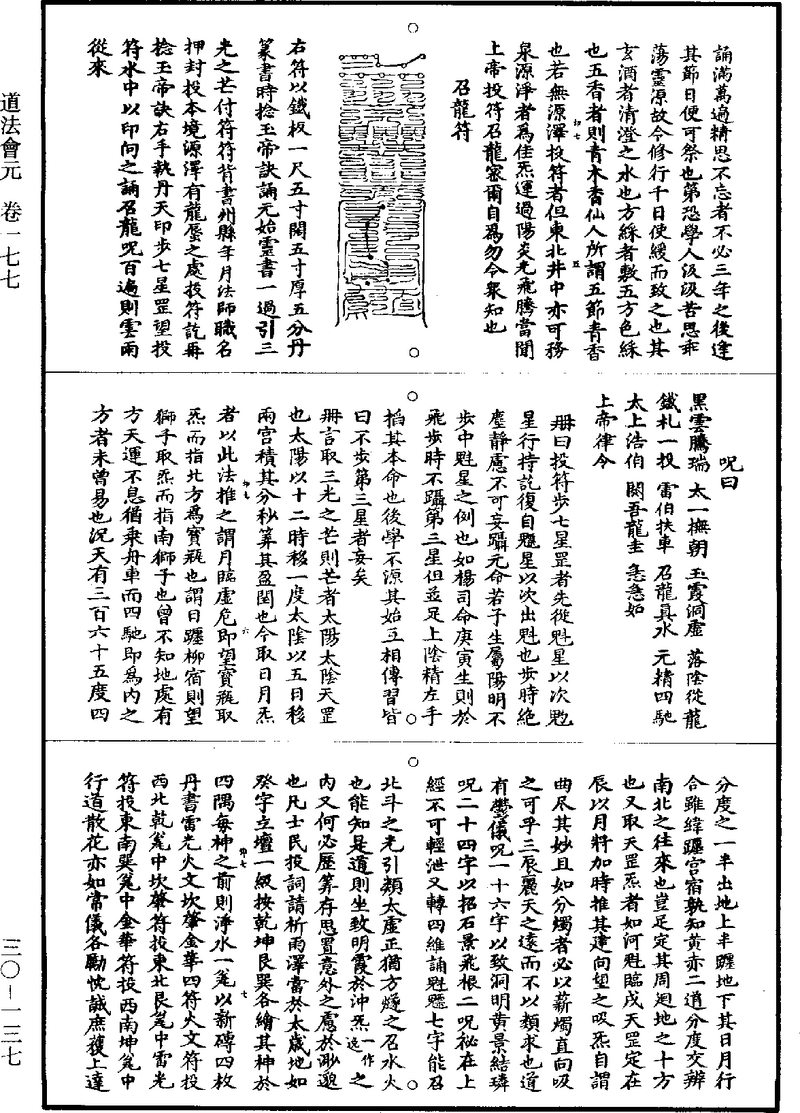 誦滿萬遍精思不忘者不必三年之後逢
其節日便可祭也第恐學人汲汲苦思乖
蕩靈源故令修行千日使緩而致之也其
玄酒者清澄之水也方綵者敷五方色綵
也五香者則青木香仙人所謂五節青香
也若無源澤投符者但東北井中亦可務
泉源淨者為佳炁運過陽炎光飛騰當聞
上帝投符召龍密爾自為勿令眾知也
召龍符
右符以鐵板一尺五寸闊五寸厚五分丹
篆書時捻玉帝訣誦元始靈書一過引三
光之芒付符符背書州縣年月法師職名
押封投本境源澤有龍蜃之處投符訖再
捻玉帝訣右手執丹天印步七星罡望投
符水中以印向之誦召龍呪百遍則雲雨
從來
呪曰
黑雲騰瑞 太一撫朝 玉霞洞虛 落陰從龍
鐵札一投 雷伯扶車 召龍真水 元精四馳
太上浩伯 闕吾龍圭 急急如
上帝律令
冊曰投符步七星罡者先從魁星以次魒
星行持訖復自魒星以次出魁也步時絕
塵靜慮不可妄躡元命若子生屬陽明不
步中魁星之例也如楊司命庚寅生則於
飛步時不躡第三星但並足上陰精左手
掐其本命也後學不源其始互相傳習皆
曰不步第三星者妄矣
冊言取三光之芒則芒者太陽太陰天罡
也太陽以十二時移一度太陰以五日移
兩宮積其分秒筭其盈閏也今取日月炁
者以此法推之謂月臨虛危即望寶瓶取
炁而指北方為寶瓶也謂日躔柳宿則望
獅子取炁而指南獅子也曾不知地處有
方天運不息猶乘舟車而四馳即為內之
方者未曾易也況天有三百六十五度四
分度之一半出地上半躔地下其日月行
合雖緯躔宮宿孰知黃赤二道分度交辨
南北之往來也豈足定其周迴地之十方
也又取天罡炁者如河魁臨戌天罡定在
辰以月將加時推其建向望之吸炁自謂
曲尽其妙且如分燭者必以薪燭直向吸
之可乎三辰麗天之遠而不以類求也道
有鬱儀呪一十六字以致洞明黃景結璘
呪二十四字以招石景飛根二呪祕在上
經不可輕泄又轉四維誦魁魒七字能召
北斗之光引類太虛正猶方燧之召水火
也能知是道則坐致明霞於沖炁一作逸之
內又何必歷筭存思置意外之慮於渺邈
也凡士民投詞請祈雨澤當於太歲地如
癸字立壇一級按乾坤艮巽各繪其神於
四隅每神之前則淨水一瓮以新磚四枚
丹書雷光火文坎肇金華四符火文符投
西北乾瓮中坎肇符投東北艮瓮中雷光
符投東南巽瓮中金華符投西南坤瓮中
行道散花亦如常儀各勵忱誠庶獲上達
道法會元 卷一七七
三〇—一三七